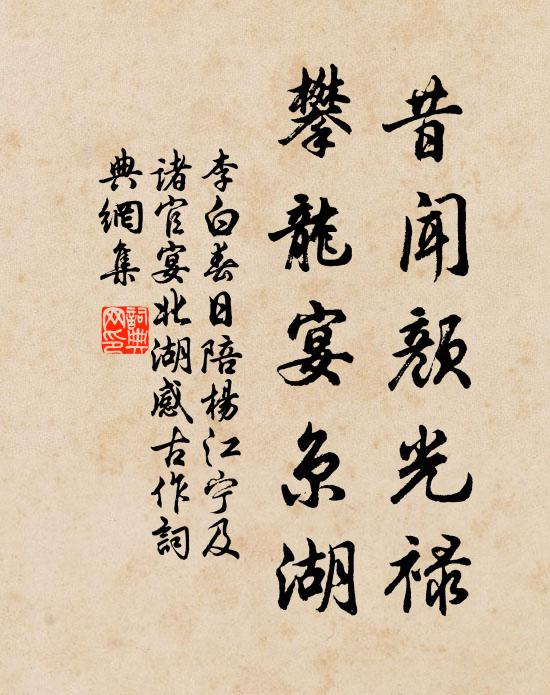 昔闻颜光禄
攀龍宴京湖
李白春日陪楊江宁及
諸官宴北湖感古作詞
典網集
詞典网印